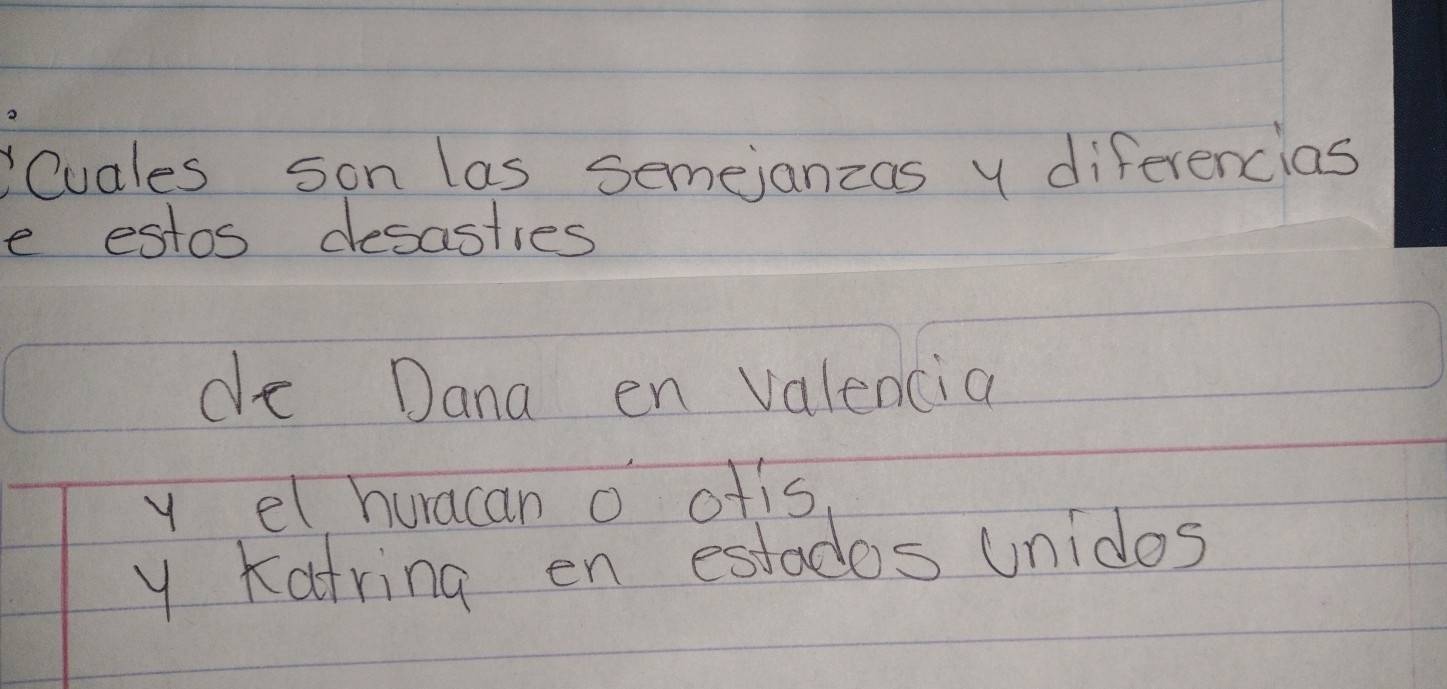 ¿Cuales son las semejanzas y diferencias
e estos desastres
de Dana en Valencia
y el huracan o otis,
y Katrina en estados unidos